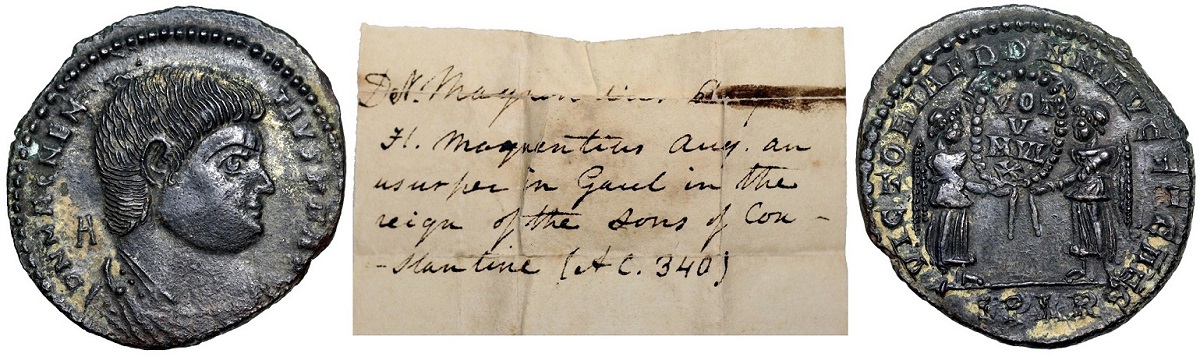 D N MAGNEN TIVS P F A
A
D N. Magnentius.
Fl. Magnentius Aug. an
usurper in Gaul in the
reign of the sons of Con –
– stantine (A C. 340)
VICTORIAE DD NN AVG ET CAE
VOT
V
MVL
X